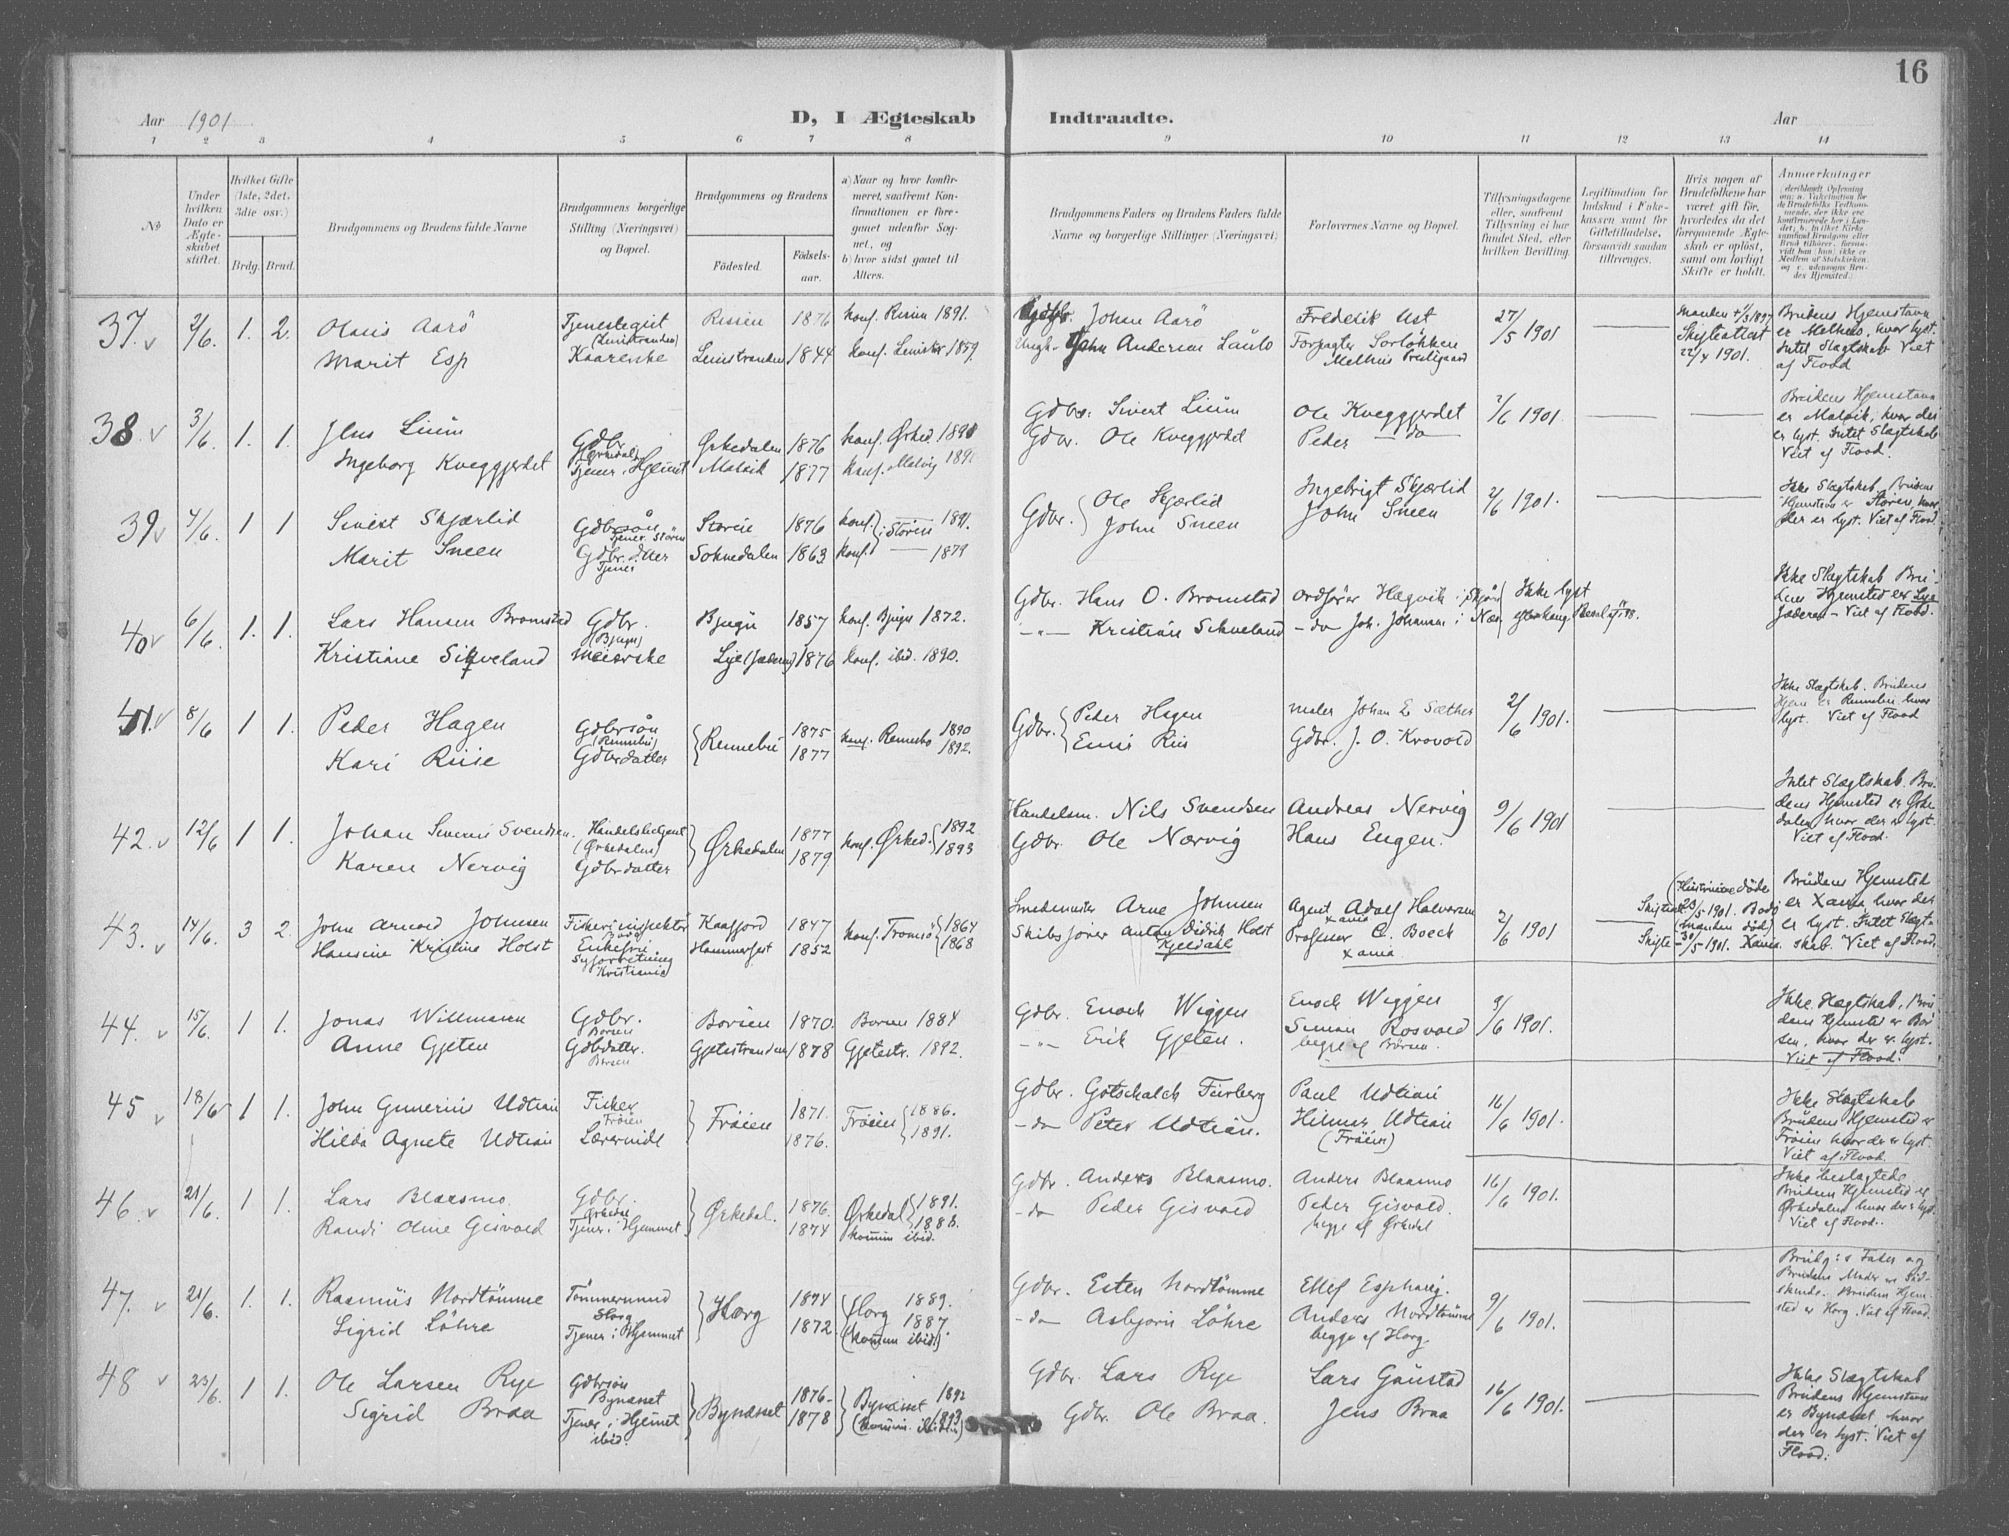 16
Aar 1901
D, I Ægteskab
Indtraadte.
Aar
1 2 3 4 5 6 7 8 9 10 11 12 13 14
№
Under hvilken Dato er Ægteskabet stiftet.
Hvilket Gifte (1ste, 2det, 3die osv.)
Brdg.
Brud.
Brudgommens og Brudens fulde Navne
Brudgommens borgerlige Stilling (Næringsvei) og Bopæl.
Brudgommens og Brudens
Födested.
Födselsaar.
a) Naar og hvor konfirmeret, saafremt Konfirmationen er foregaaet udenfor Sognet, og
b) hvor sidst gaaet til Alters.
Brudgommens Faders og Brudens Faders fulde Navne og borgerlige Stillinger (Næringsvei)
Forlovernes Navne og Bopæl.
Tillysningsdagene eller, saafremt Tillysning ei har fundet Sted, efter hvilken Bevilling.
Legitimation for Indskud i Enkekassen samt for Giftetilladelse, forsaavidt saadan tiltrænges.
Hvis nogen af Brudefolkene har været gift för, hvorledes da det foregaaende Ægteskab er oplöst, samt om lovligt Skifte er holdt.
Anmærkninger
37. 2/6. 1. 2.
Marit Esp
Rissen 1876 konf. Rissen 1891.
Lenstranden 1844 konf. 1859.
Johan Aarö
Fredrik Ust
Forpagter
27/5 1901
Skifteattest 22/4 1901.
Brudens Hjemstavn er Melhus, hvor lyst. Intet Slægtskab. Viet af Flood
38 3/6. 1. 1.
Jens Lium
Ingeborg Kveggjerdet
Gdbr. (Örkedal)
Tjener i Hjemet
Örkedalen 1876 konf. Örked. 1891
Malvik 1877 konf. Malvig
Gdbr. Sivert Lium
Gdbr. Ole Kveggjerdet
Ole Kveggjerdet
Peder — do
2/6 1901.
Brudens Hjemstavn er Malvik, hvor der er lyst. Intet Slægtskab Viet af Flood.
39 4/6. 1 1
Sivert Skjærlid
Marit Sneen
Gdbrsön
Tjener Stören
Gdbr.datter
Tjener
Stören 1876 konf. i Stören 1891.
Soknedalen 1863 konf. — 1879
Gdbr. Ole Skjærlid
John Sneen
Ingebrigt Skjærlid
John Sneen
2/6 1901.
Ikke Slægtskab. Brudens Hjemstavn er Stören, hvor der er lyst. Viet af Flood.
40 6/6. 1. 1.
Lars Hansen Bromstad
Kristiane Sikveland
Gdbr. (Bjugn)
Meierske
Bjugn 1857 konf. Bjugn 1872.
Lye (Jæderen) 1876 konf. ibid. 1890.
Gdbr. Hans O. Bromstad
—"— Kristian Sikveland
Ordförer Hægvik i
— do Joh. Johansen i Næs
Ikke lyst
Ikke Slægtskab Brudens Hjemsted er Lye Jæderen — Viet af Flood.
41. 8/6 1 1.
Peder Hagen
Kari Riise
Gdbrsön (Rennebu)
Gdbrdatter
Rennebu 1875 1877
konf. Rennebo 1890 1892.
Gdbr. Peder Hagen
Maler Johan E Sæther
Gdbr. J. O. Krovold
2/6 1901.
Ikke Slægtskab. Brudens Hjem er Rennebu hvor lyst. Viet af Flood
42. 12/6 1 1.
Johan Severin Svendsen.
Karen Nervig
Handelsbetjent (Örkedalen)
Gdbrdatter
Örkedalen 1877 1879
konf. Örked. 1892 1893
Handelsm. Nils Svendsen
Gdbr. Ole Nærvig
Andreas Nervig
Hans Engen.
9/6 1901
Intet Slægtskab. Brudens Hjemsted er Örkedalen hvor der er lyst. Viet af Flood.
43. 14/6. 3 2.
John Arnord Johnsen
Hansine Kristine Holst
Fiskeriinspektör
Enkefru
Syforretning Kristiania
Kaafjord 1847 konf. Tromsö 1864
Hammerfest 1852 1868
Smedemester Arne Johnsen
Skibsförer Anton Didrik Holst Kjeldahl
Agent Adolf Halvorsen Xania
Professor C. Boeck Xania
2/6 1901
(Hustruen död
Skifteatt. 23/5 1901. Bodö
(Manden död)
Skifte — 30/5 1901. Xania
Brudens Hjemsted er Xania hvor der er lyst. Intet Slægtskab. Viet af Flood.
44. 15/6. 1 1.
Jonas Willmann
Anne Gjeten
Gdbr. Börsen
Gdbdatter. Börsen
Borsen 1870. Borsen 1884
Gjetestranden 1878 Gjetestr. 1892.
Gdbr. Enoch Wiggen
—"— Erik Gjeten.
Enoch Wiggen
Simon Rosvold
begge af Börsen.
9/6 1901.
Ikke Slægtskab. Brudens Hjemsted er Börsen, hvor der er lyst. Viet af Flood.
45 18/6 1 1.
John Gunerius Udtian
Hilda Agnete Udtian
Fisker Fröien
Lærerinde
Fröien 1871. 1876.
Fröien 1886. 1891.
Gdbr. Gotschalch Furberg
—do Peter Udtian.
Paul Udtian
Hilmar Udtian
(Fröien)
16/6 1901.
Ikke Slægtskab Brudens Hjemsted er Fröien hvor der er lyst. Viet af Flood.
46. 21/6. 1 1.
Lars Blaasmo.
Randi Oline Gisvold
Gdbr. Örkedal
Tjener i Hjemmet
Örkedal. 1876. 1874
Örkedal 1891. 1888.
komm ibid.
Gdbr. Anders Blaasmo.
—do Peder Gisvold
Anders Blaasmo
Peder Gisvold.
begge af Örkedal
16/6 1901.
Ikke beslægtede Brudens Hjemsted er Örkedalen hvor der er lyst. Viet af Flood.
47. 21/6. 1. 1.
Rasmus Nordtömme
Sigrid Löhre
Tömmermand Horg
Tjener i Hjemmet
Horg 1874 1872.
Horg 1889. 1887.
(komm ibid.)
Gdbr. Esten Nordtömme
—do Asbjörn Löhre
Ellef Esphaug.
Anders Nordtömme
begge af Horg.
9/6 1901.
Brudg:s Fader og Brudens Moder er Södskende. Brudens Hjemsted er Horg. Viet af Flood.
48 23/6. 1 1.
Ole Larsen Rye
Sigrid Braa
Gdbrsön Bynæsset
Tjener i Hjemet ibid.
Bynæsset 1876 1878
Bynæsset 1892 1893
(komm. ibidem)
Gdbr. Lars Rye
Gdbr. Ole Braa.
Lars Gaustad
Jens Braa
16/6 1901.
Ikke Slægtskab Brudens Hjemstavn er Bynæsset hvor der er lyst. Viet af Flood.